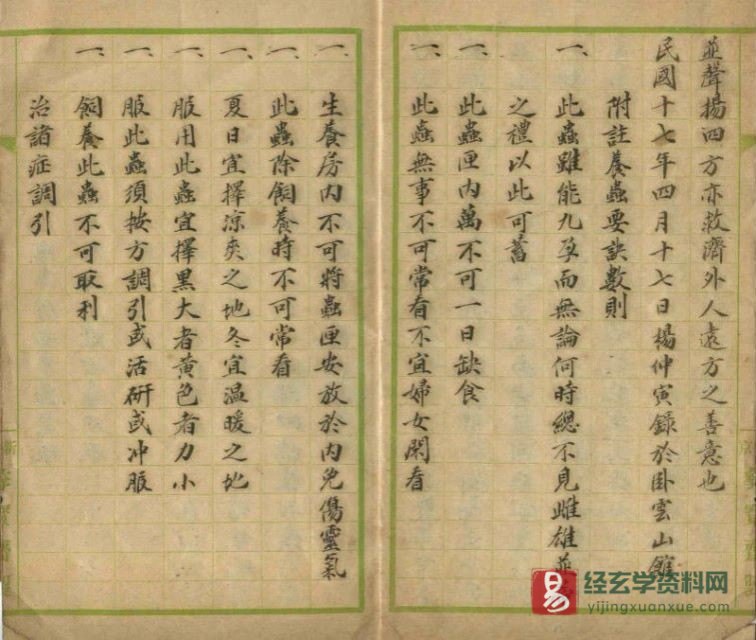 並聲揚四方亦救濟外人遠方之善意也
民國十七年四月十七日楊仲寅錄於臥雲山館
附註養蟲要訣數則
一、此蟲雖能九孕而無論何時總不見雌雄並
之禮以此可蓄
一、此蟲匣內萬不可一日缺食
一、此蟲無事不可常看不宜婦女閑看
一、生養房內不可將蟲匣安放於內免傷靈氣
一、此蟲除飼養時不可常看
一、夏日宜擇涼爽之地冬宜温暖之地
一、服用此蟲宜擇黑大者黃色者力小
一、服此蟲須按方調引或活研或冲服
一、飼養此蟲不可取利
治諸症調引
易
经玄学资料网
yijingxuanxue.com